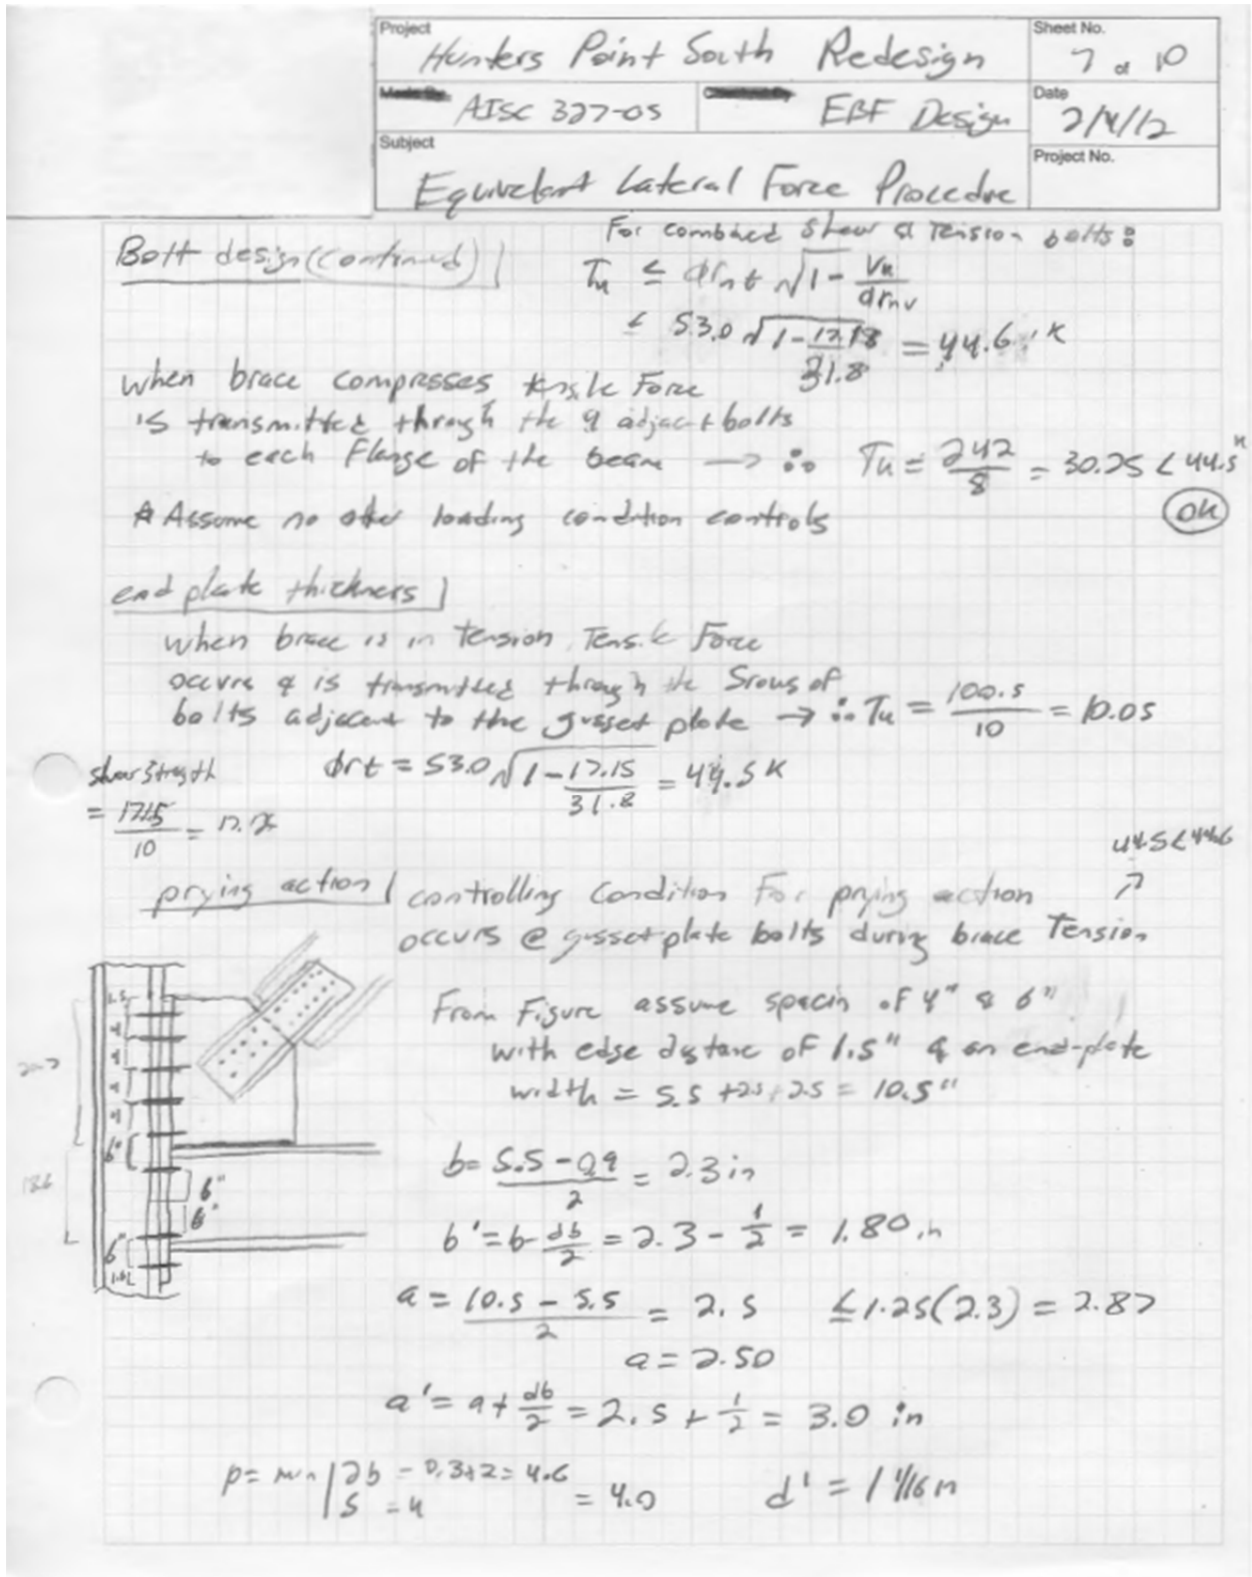 Project
Hunters Point South Redesign
Sheet No.
7 of 10
AISC 327-05
EBF Design
Date
2/4/12
Subject
Equivelant Lateral Force Procedure
Project No.
Bolt design (continued)
For combined Shear & Tension bolts:
Tu ≤ φrnt √1 - Vu/φrnv
≤ 53.0 √1 - 17.18/31.8 = 44.6 K
when brace compresses tensile Force
is transmitted through the 4 adjacent bolts
to each Flange of the beam → ∴ Tu = 242/8 = 30.25 < 44.5 K
OK
* Assume no other loading condition controls
end plate thickness
when brace is in Tension, Tensile Force
occurs & is transmitted through the 5 rows of
bolts adjacent to the gusset plate → ∴ Tu = 100.5/10 = 10.05
shear strength
= 171.5/10 =
φrt = 53.0 √1 - 17.15/31.8 = 44.5 K
44.5 < 44.6
prying action
controlling Condition For prying action
occurs @ gusset plate bolts during brace Tension
From Figure assume spacin of 4" & 6"
with edge distanc of 1.5" & an end-plate
width = 5.5 + 2.5 + 2.5 = 10.5"
b = 5.5 - 0.9/2 = 2.3 in
b' = b - db/2 = 2.3 - 1/2 = 1.80 in
a = 10.5 - 5.5/2 = 2.5 ≤ 1.25(2.3) = 2.87
a = 2.50
a' = a + db/2 = 2.5 + 1/2 = 3.0 in
p = min | 2b = 2.3*2 = 4.6
S = 4
= 4.0
d' = 1 1/16 in
1.5
4
4
4
4
6"
6"
6"
6"